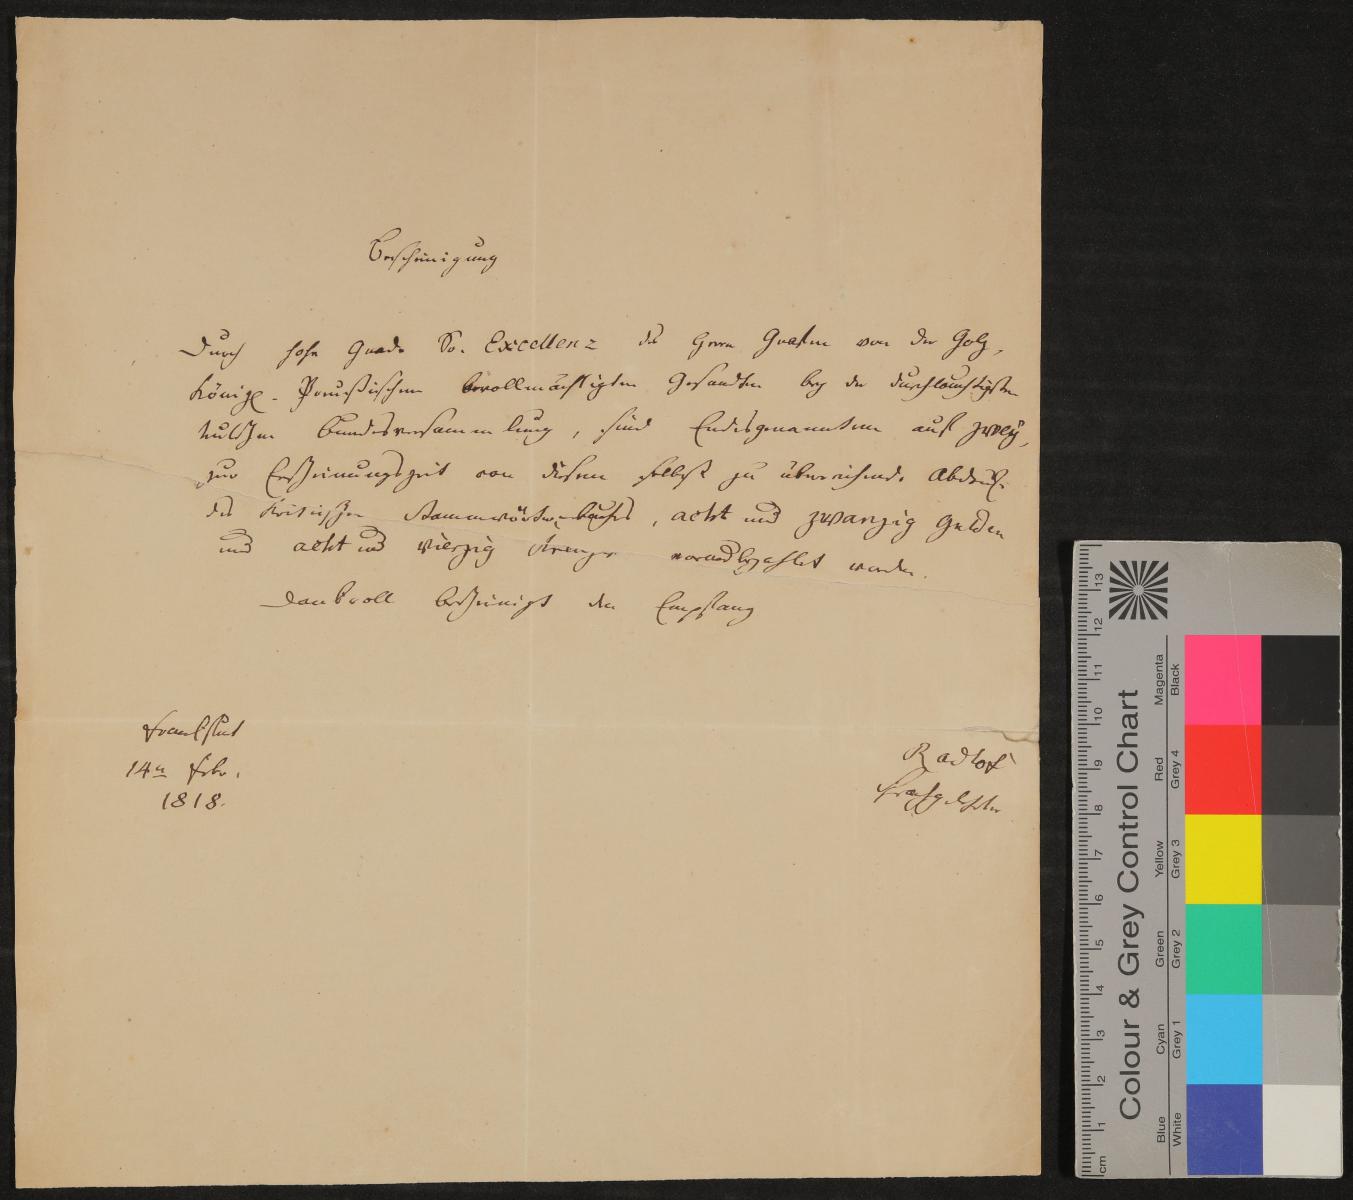 Bescheinigung
Durch hohe Gnade Sr. Excellenz des Herrn Grafen von der Golz,
Königl. Preußischen bevollmächtigten Gesandten bey der durchlauchtigsten
teutschen Bundesversammlung, sind Endesgenanntem auf zwey,
zur Erscheinungszeit von diesem selbst zu überreichende Abdrücke
des kritischen Stammwörterbuches, acht und zwanzig Gulden
und acht und vierzig Kreuzer vorausbezahlt worden.
Dankvoll bescheinigt den Empfang
Frankfurt
14n Febr.
1818.
Radlof
cm 1 2 3 4 5 6 7 8 9 10 11 12 13
Colour & Grey Control Chart
Blue Cyan Green Yellow Red Magenta
White Grey 1 Grey 2 Grey 3 Grey 4 Black